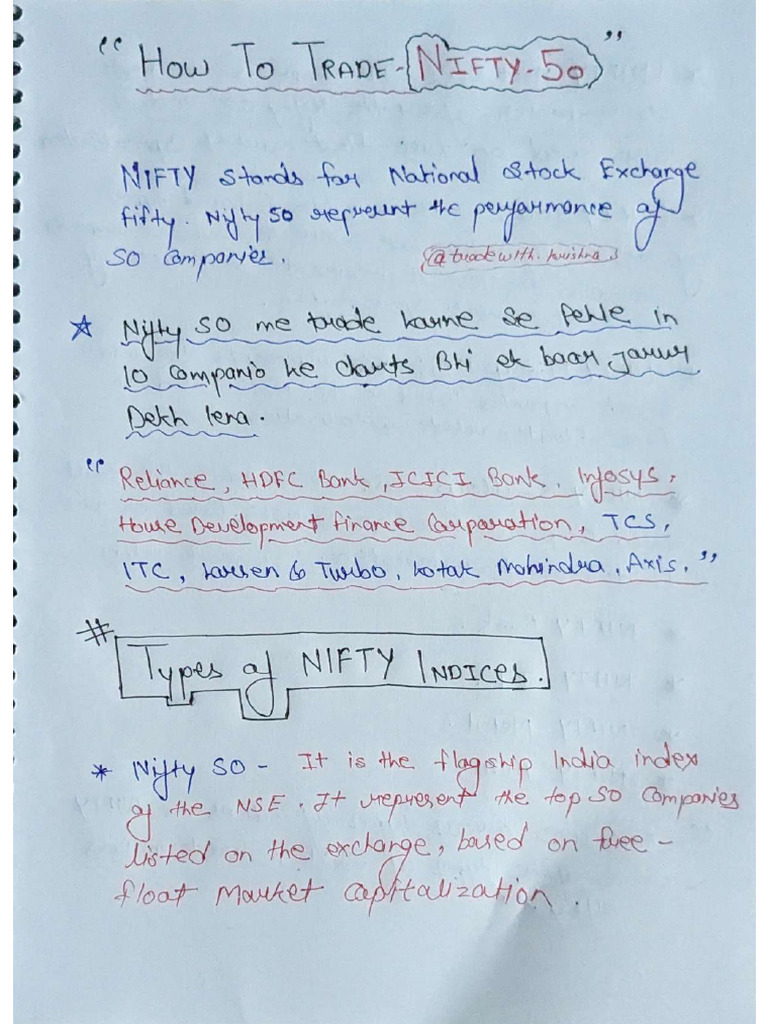 "How To TRADE-NIFTY-50"
NIFTY stands for National Stock Exchange
fifty. Nifty 50 represent the performance of
50 Companies.
@tradewith.krishna_s
Nifty 50 me trade karne se Pehle in
10 Companio ke charts Bhi ek baar jarur
Dekh lena.
"Reliance, HDFC Bank, ICICI Bank, Infosys,
House Development finance Corporation, TCS,
ITC, Larsen & Turbo, Kotak Mahindra, Axis."
# Types of NIFTY INDICES.
* Nifty 50 - It is the flagship India index
of the NSE. It represent the top 50 Companies
listed on the exchange, based on free-
float Market capitalization.